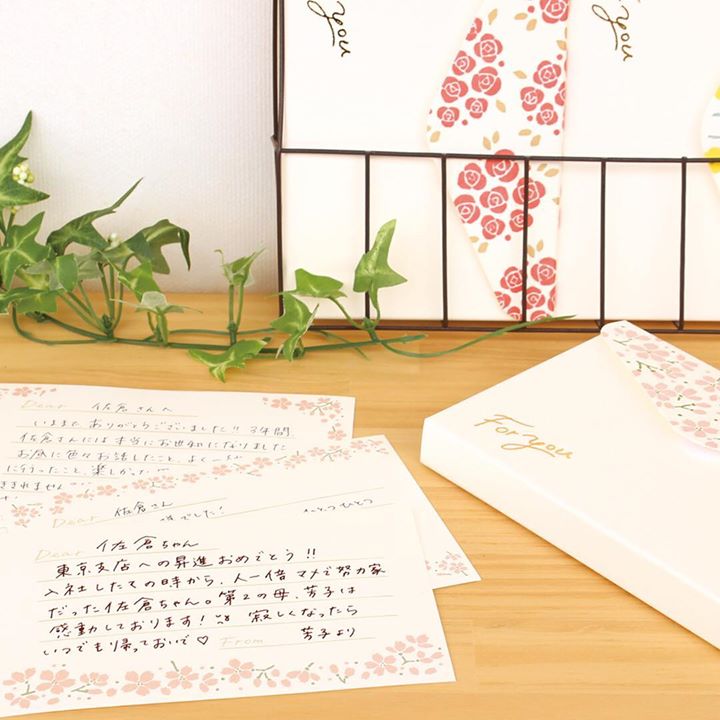 For you
For you
For you
Dear 佐倉さんへ
いままで ありがとうございました!! 3年間
佐倉さんには本当にお世話になりました
お昼に色々お話したこと、よく一緒
に行ったこと、楽しかった
きれません
Dear 佐倉さん
でした!
ひとつひとつ
Dear 佐倉ちゃん
東京支店への昇進おめでとう!!
入社したての時から、人一倍マメで努力家
だった佐倉ちゃん。第2の母、芳子は
感動しております! 寂しくなったら
いつでも帰っておいで♡ From 芳子より